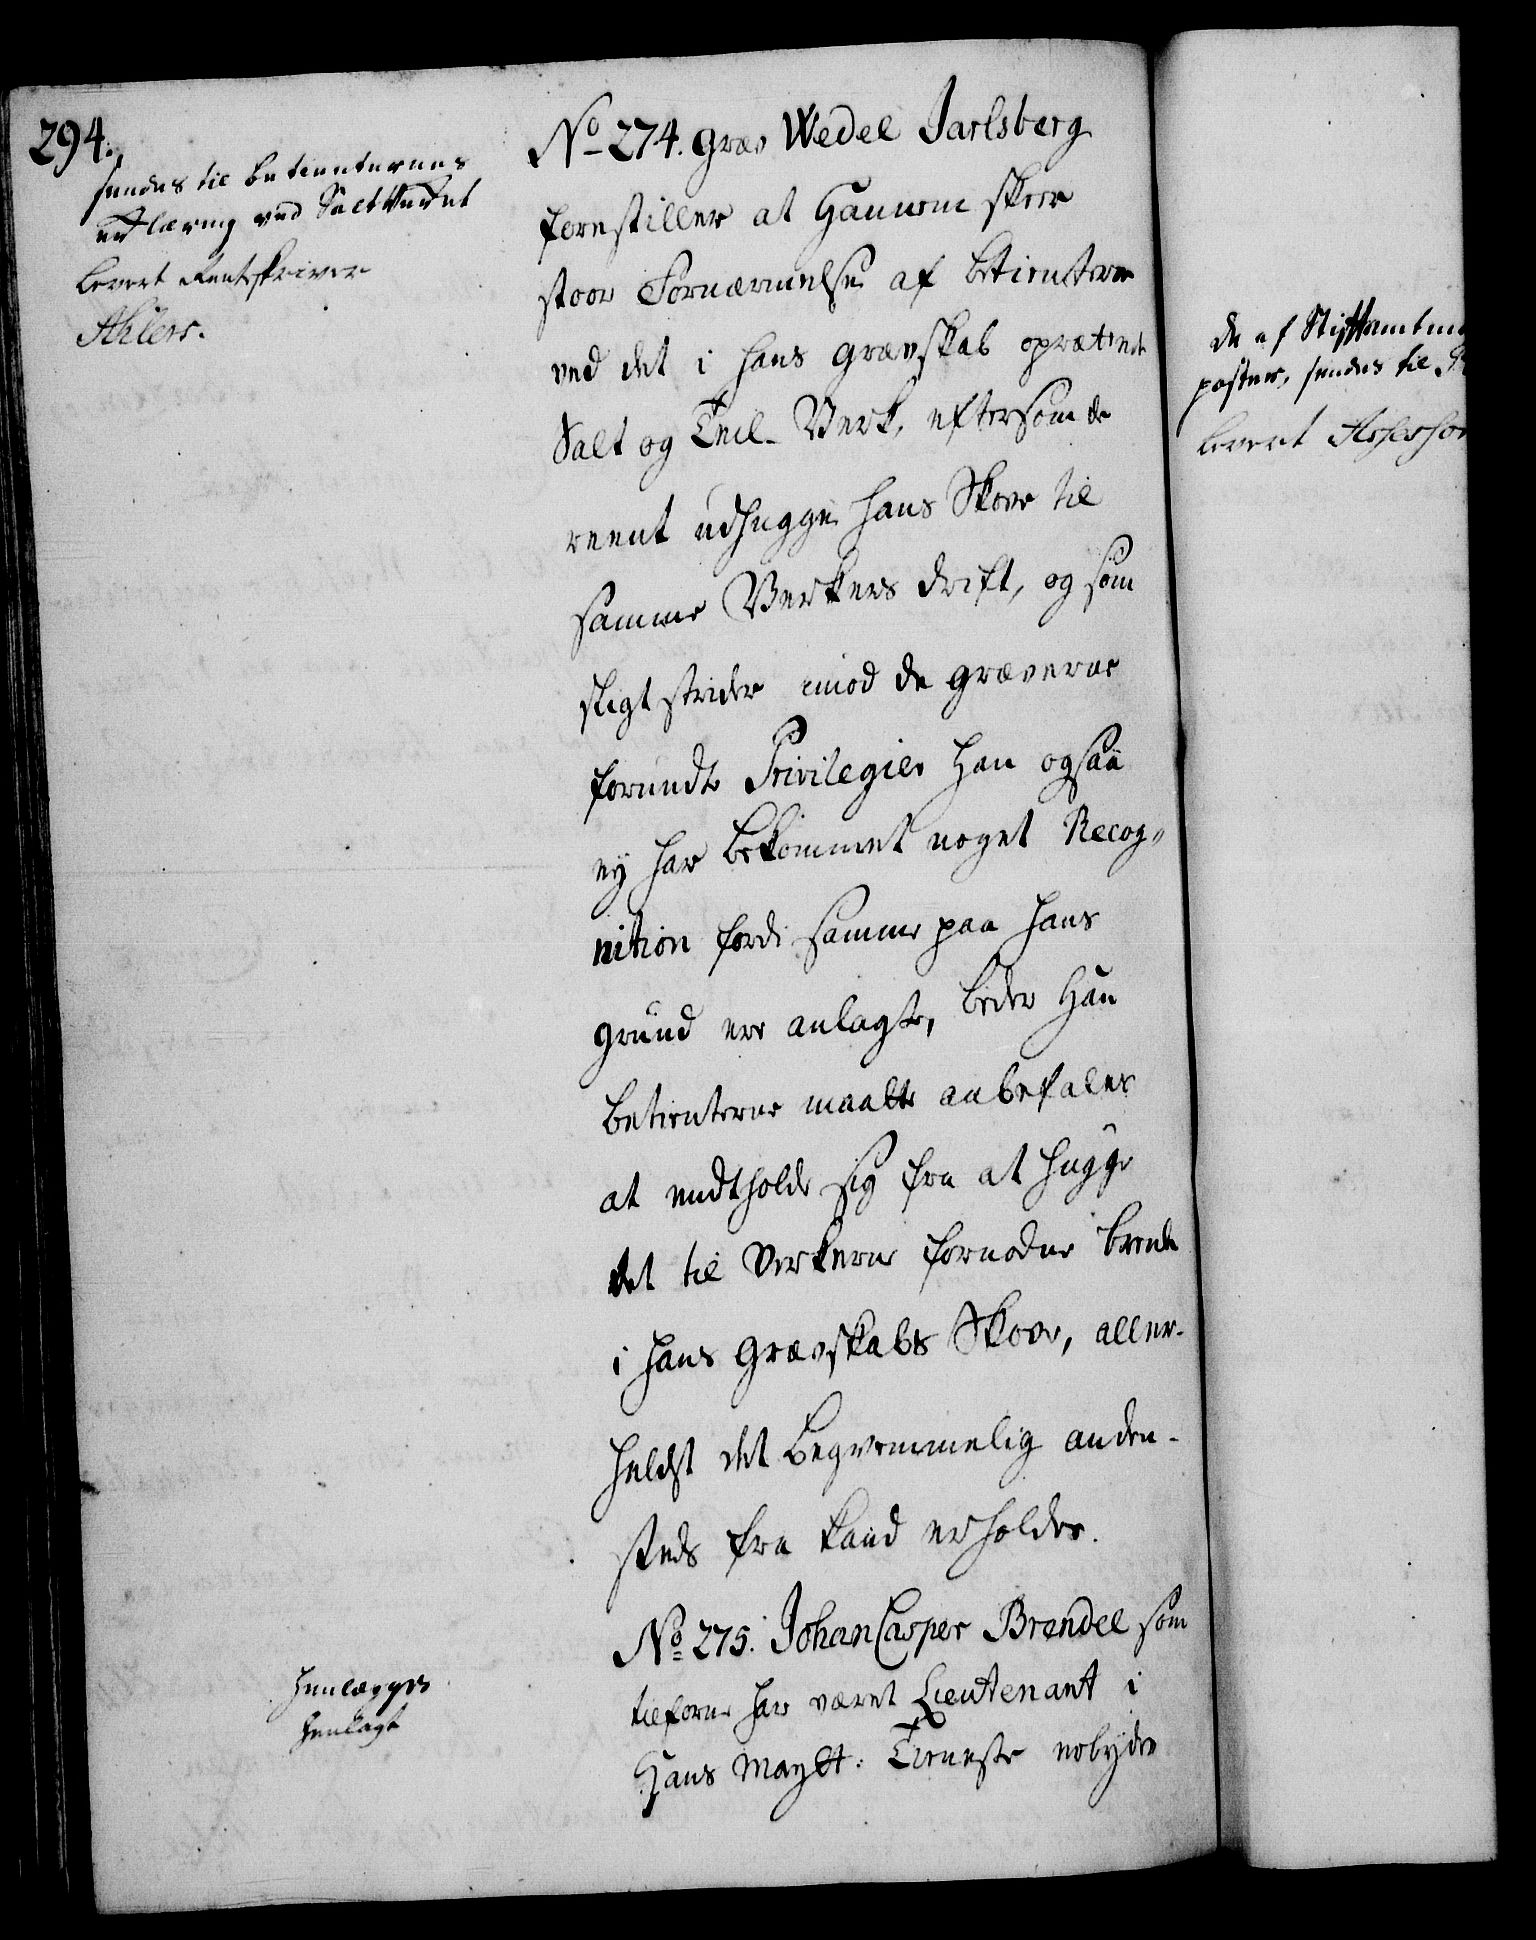 294.
sendes til betienternes
erklæring ved Saltverket
leveret Rentskriver
Ahlers.
No 274. Græv Wedel Jarlsberg
forestiller at Hannem skeer
stoor Fornærmelse af betienterne
ved det i hans grævskab oprættede
Salt og Teil-Verk, eftersom de
reent udhugge hans Skove til
samme Verkers drift, og som
sligt strider imod de græverne
forundte Privilegier Han ogsaa
ej har bekommet noget Recog-
nition fordi samme paa hans
grund ere anlagte, beder Han
betienterne maatte anbefales
at entholde sig fra at hugge
det til Verkerne fornødne brende
i hans grævskabs Skove, aller-
heldst det beqvemmelig anden-
steds fra kand erholdes.
henlægges
henlagt
No 275. Johan Casper Brendel som
tilforne har været Lieutenant i
Hans Maytt: Tieneste erbyder
de af Stiftamtm
poster, sendes til
leveret Assessor